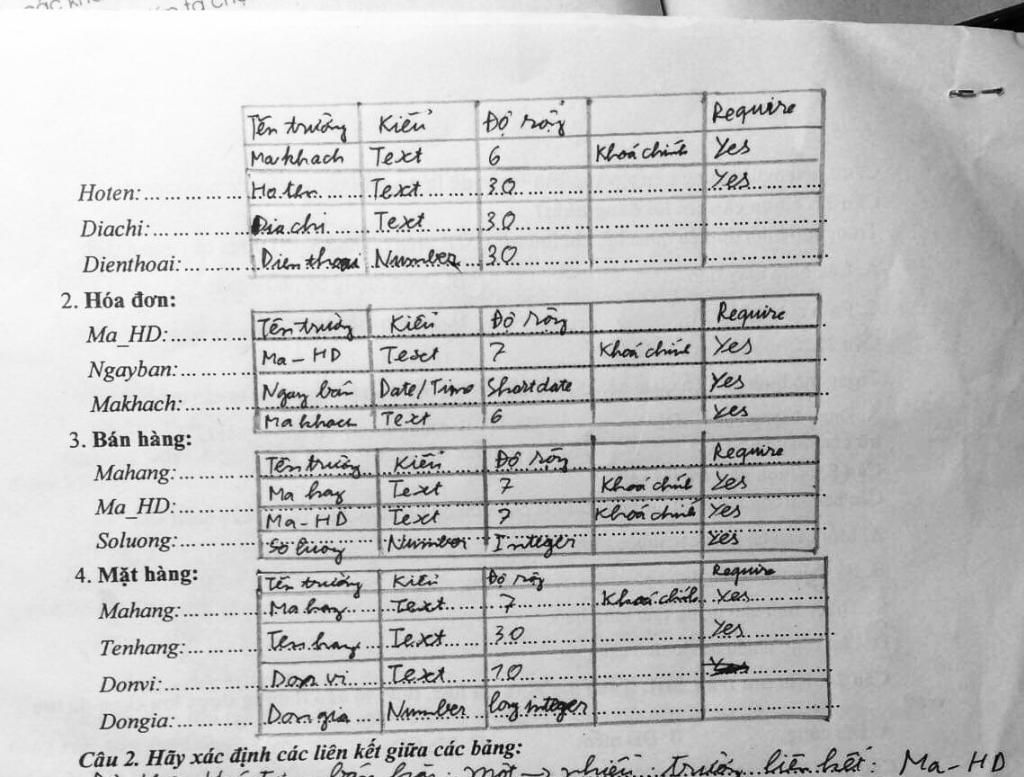 Tên trường Kiểu Độ rộng Require
Makhach Text 6 Khoá chính Yes
Hoten:.................. Ho ten Text 30 Yes
Diachi:.................. Dia chi Text 30
Dienthoai:............ Dien thoai Number 30
2. Hóa đơn:
Tên trường Kiểu Độ rộng Require
Ma_HD:............... Ma-HD Text 7 Khoá chính Yes
Ngayban:............ Ngay bán Date/Time Shortdate Yes
Makhach:............ Ma khach Text 6 Yes
3. Bán hàng:
Tên trường Kiểu Độ rộng Require
Mahang:............ Ma hag Text 7 Khoá chính Yes
Ma_HD:............ Ma-HD Text 7 Khoá chính Yes
Soluong:............ Số lượng Number Integer Yes
4. Mặt hàng:
Tên trường Kiểu Độ rộng Require
Mahang:............ Ma hag Text 7 Khoá chính Yes
Tenhang:............ Ten hang Text 30 Yes
Donvi:............ Don vi Text 10
Dongia:............ Don gia Number long integer
Câu 2. Hãy xác định các liên kết giữa các bảng:
một → nhiều trường liên kết: Ma-HD